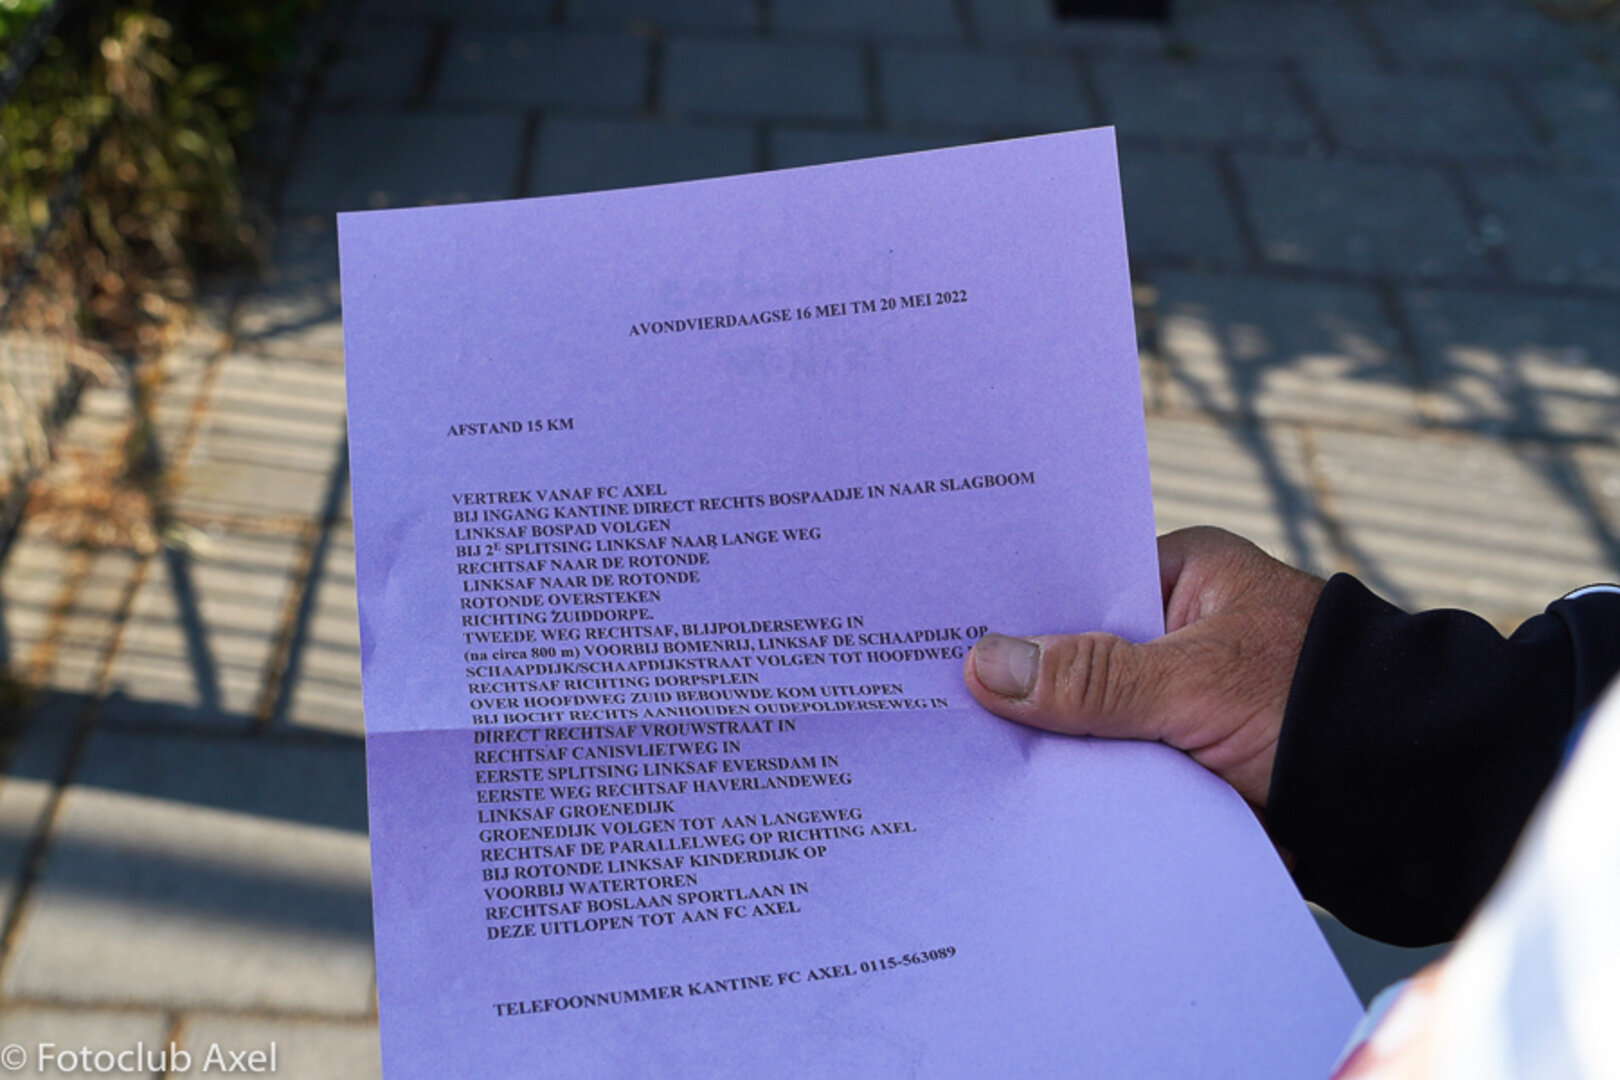 AVONDVIERDAAGSE 16 MEI TM 20 MEI 2022
AFSTAND 15 KM
VERTREK VANAF FC AXEL
BIJ INGANG KANTINE DIRECT RECHTS BOSPAADJE IN NAAR SLAGBOOM
LINKSAF BOSPAD VOLGEN
BIJ 2E SPLITSING LINKSAF NAAR LANGE WEG
RECHTSAF NAAR DE ROTONDE
LINKSAF NAAR DE ROTONDE
ROTONDE OVERSTEKEN
RICHTING ZUIDDORPE.
TWEEDE WEG RECHTSAF, BLIJPOLDERSEWEG IN
(na circa 800 m) VOORBIJ BOMENRIJ, LINKSAF DE SCHAAPDIJK OP
SCHAAPDIJK/SCHAAPDIJKSTRAAT VOLGEN TOT HOOFDWEG
RECHTSAF RICHTING DORPSPLEIN
OVER HOOFDWEG ZUID BEBOUWDE KOM UITLOPEN
BIJ BOCHT RECHTS AANHOUDEN OUDEPOLDERSEWEG IN
DIRECT RECHTSAF VROUWSTRAAT IN
RECHTSAF CANISVLIETWEG IN
EERSTE SPLITSING LINKSAF EVERSDAM IN
EERSTE WEG RECHTSAF HAVERLANDEWEG
LINKSAF GROENEDIJK
GROENEDIJK VOLGEN TOT AAN LANGEWEG
RECHTSAF DE PARALLELWEG OP RICHTING AXEL
BIJ ROTONDE LINKSAF KINDERDIJK OP
VOORBIJ WATERTOREN
RECHTSAF BOSLAAN SPORTLAAN IN
DEZE UITLOPEN TOT AAN FC AXEL
TELEFOONNUMMER KANTINE FC AXEL 0115-563089
© Fotoclub Axel